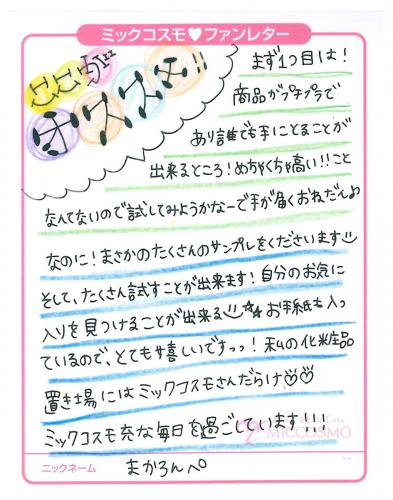 ミックコスモ♥ファンレター
ここが
オススメ!!
まず1つ目は!
商品がプチプラで
あり誰でも手にとることが
出来るところ!めちゃくちゃ高い!!こと
なんてないので試してみようかなーで手が届くおねだん♪
なのに!まさかのたくさんのサンプルをくださいます
そして、たくさん試すことが出来ます!自分のお気に
入りを見つけることが出来る お手紙も入っ
ているので、とても嬉しいですっっ!私の化粧品
置き場にはミックコスモさんだらけ♡♡
ミックコスモ充な毎日を過ごしています!!!
MICCOSMO
ニックネーム
まかろんぺ